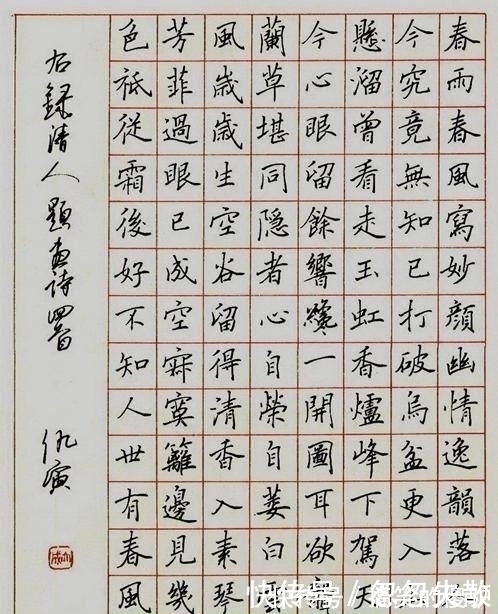 春雨春風寫妙顏幽情逸韻落
今究竟無知已打破烏盆更入
懸溜曾看走玉虹香爐峰下駕
今心眼留餘響纔一開圖耳欲
蘭草堪同隱者心自榮自萎白
風歲歲生空谷留得清香入素琴
芳菲過眼已成空寂寞籬邊見幾
色祗從霜後好不知人世有春風
右錄清人題畫詩四首
仇寅
快传号/匆匆失散